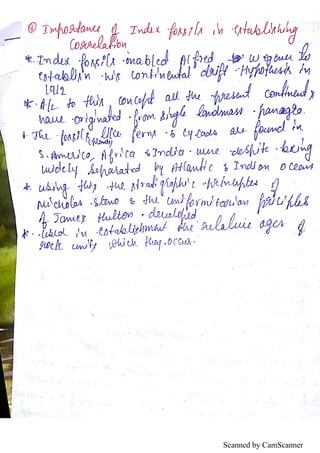 ③ Importance of Index fossils in establishing
Correlation
* Index fossils enabled Alfred Wegener to
establish his continental drift Hypothesis in
1912
* A/c to this concept all the present continents
have originated from single landmass - panagea.
* The fossils like ferns & cycads are found in
S. America, Africa & India were despite being
widely separated by Atlantic & Indian oceans
* using this the stratigraphic principles of
Nicholas Steno & the uniformitarian principles
of James Hutton developed
* Used in establishment the relative ages of
rock units which they occur.
Scanned by CamScanner